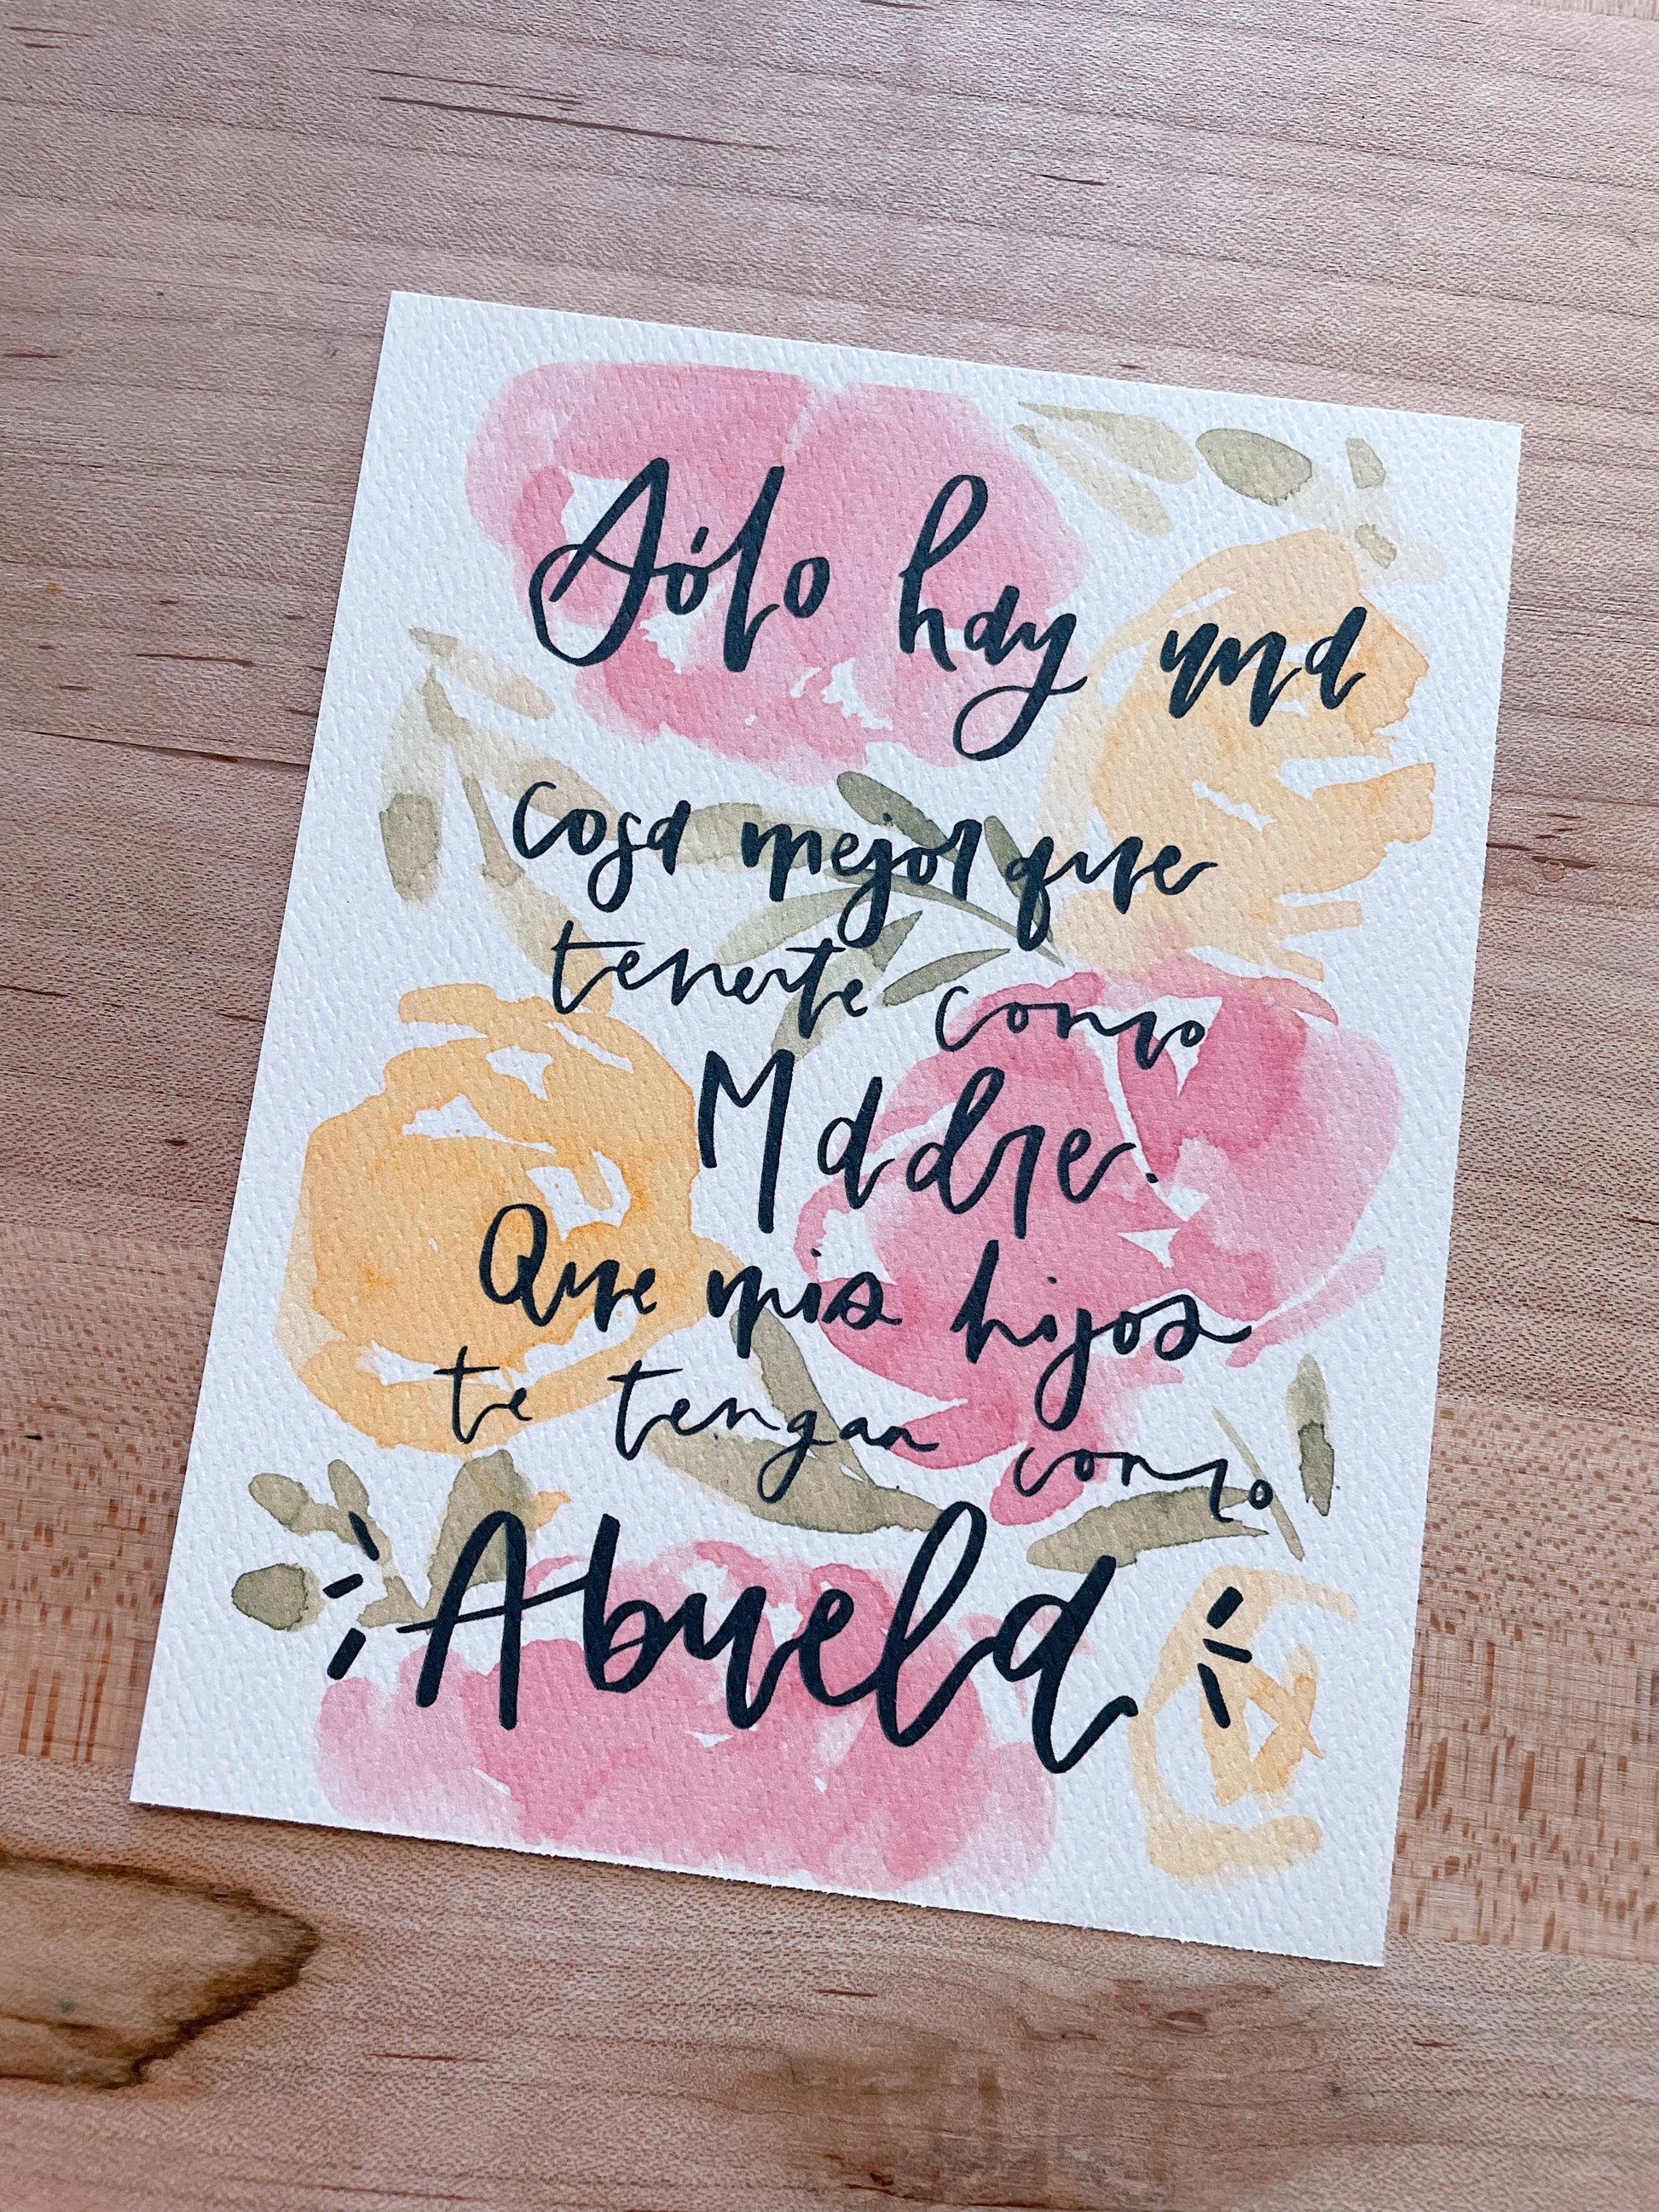 Sólo hay una
cosa mejor que
tenerte como
Madre.
Que mis hijos
te tengan como
Abuela